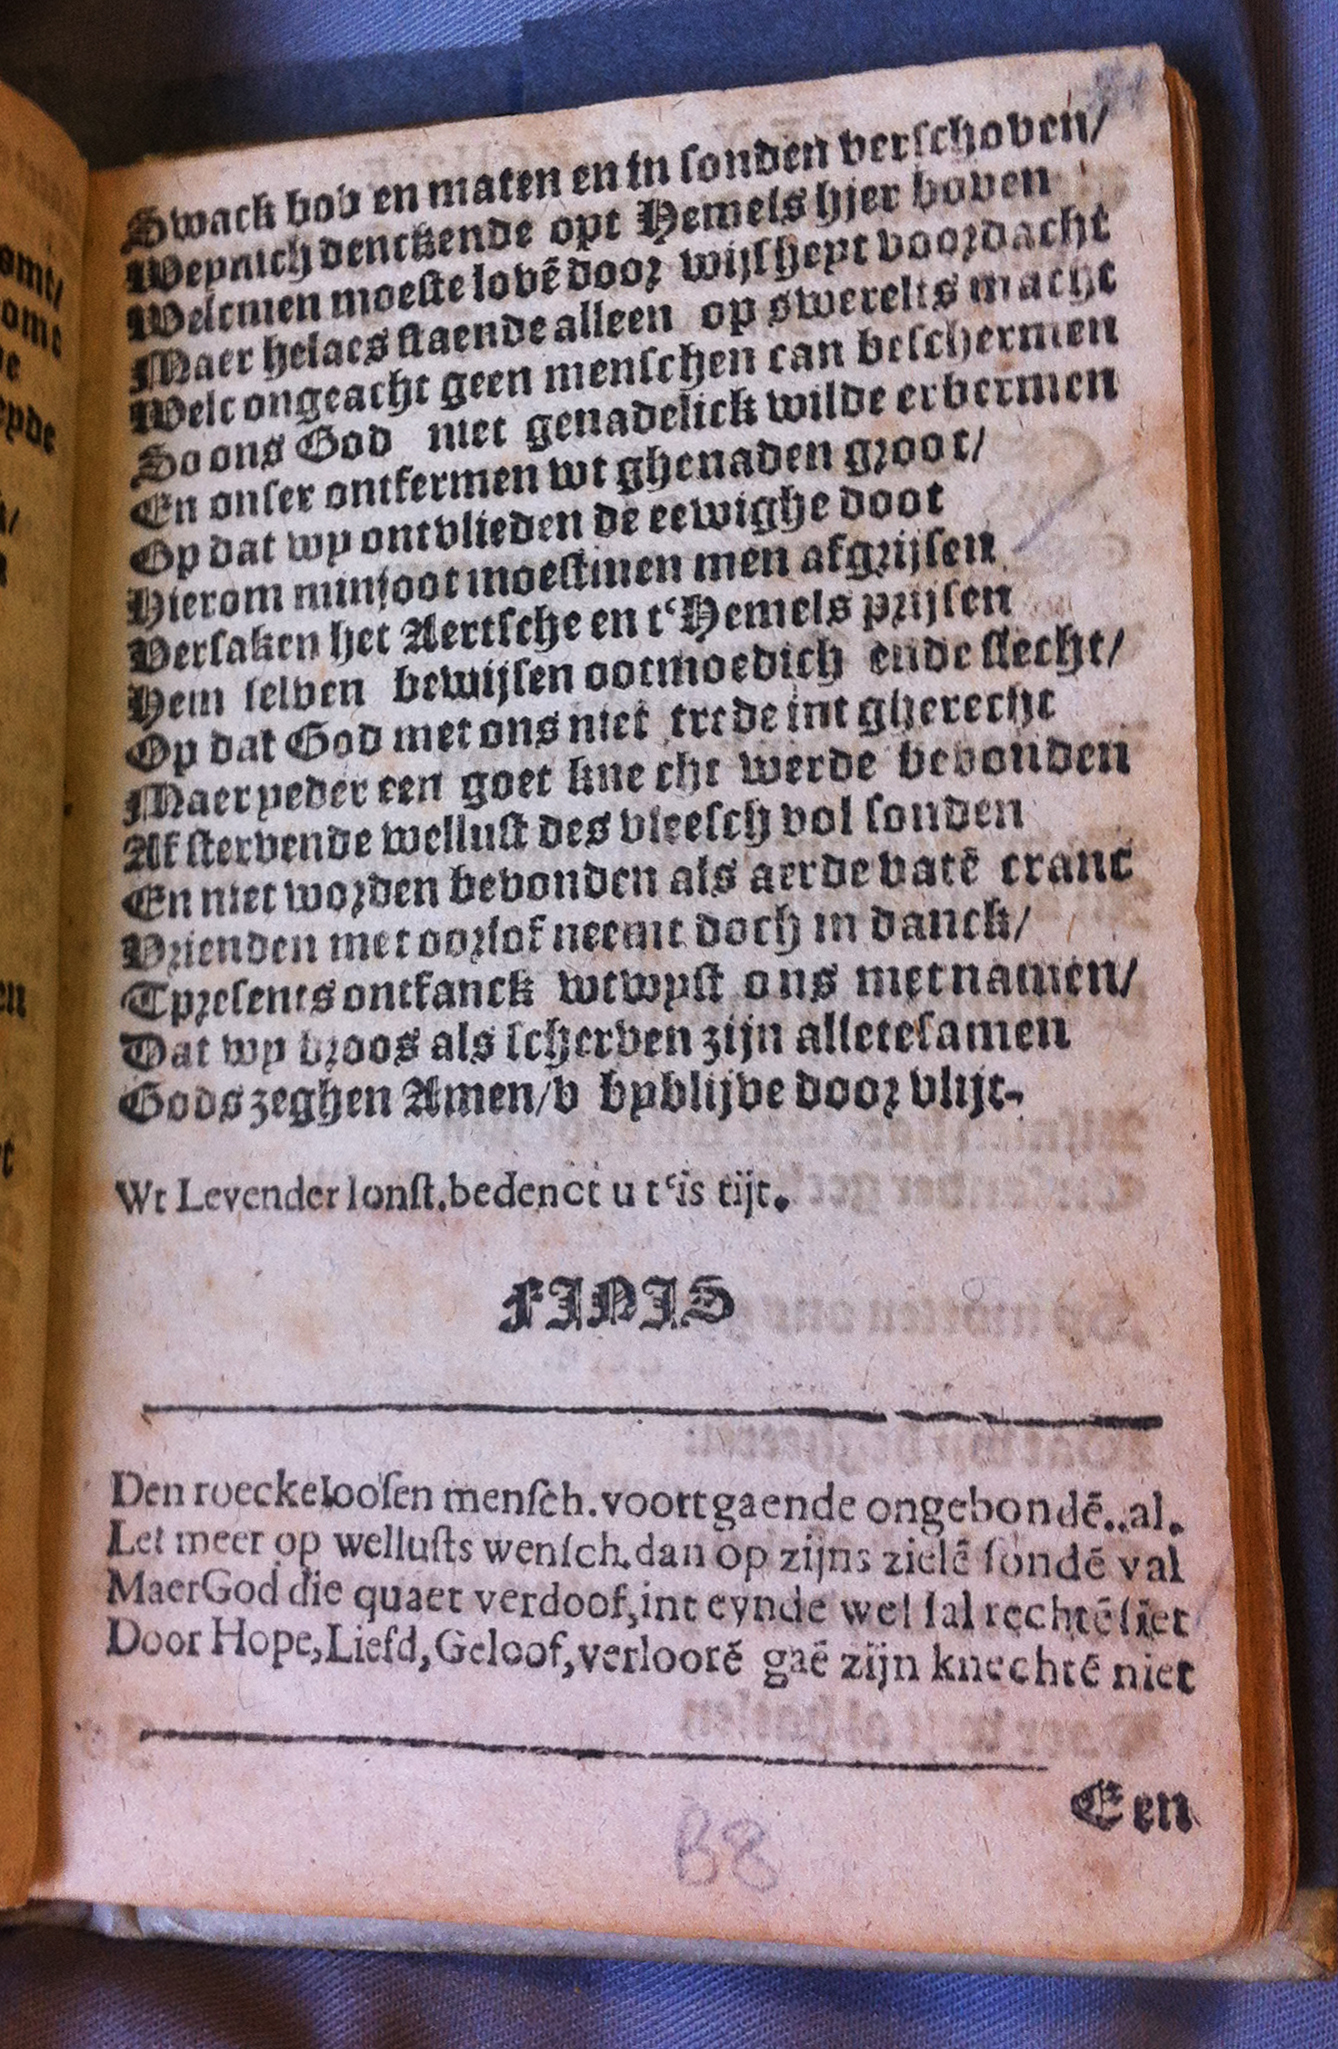 Swack bov en maten en in sonden verschoven/
Weynich denckende opt Hemels hier boven
Welcmen moeste lovē door wijshept voordacht
Maer helaes staende alleen op swerelts macht
Welc ongeacht geen menschen can beschermen
So ons God niet genadelick wilde erbermen
En onser ontfermen wt ghenaden groot/
Op dat wy ontvlieden de eewighe doot
Hierom minjoot moestmen men afgrijsen
Versaken het Aertsche en t'Hemels prijsen
Hem selven bewijsen ootmoedich ende slecht/
Op dat God met ons niet trede int gherecht
Maer yeder een goet knecht werde bevonden
Afstervende wellust des vleesch vol sonden
En niet worden bevonden als aerde vatē cranc
Vrienden met oorlof neemt doch in danck/
Tpresents ontfanck wtwyst ons met namen/
Dat wy broos als scherven zijn alletesamen
Gods zeghen Amen/v byblijve door vlijt.
Wt Levender Ionst. bedenct u t'is tijt.
FINIS
Den roeckeloosen mensch. voortgaende ongebondē..al.
Let meer op wellusts wensch. dan op zijns zielē sondē val
Maer God die quaet verdoof, int eynde wel sal rechtē siet
Door Hope, Liefd, Geloof, verloorē gaē zijn knechtē niet
Een
B8